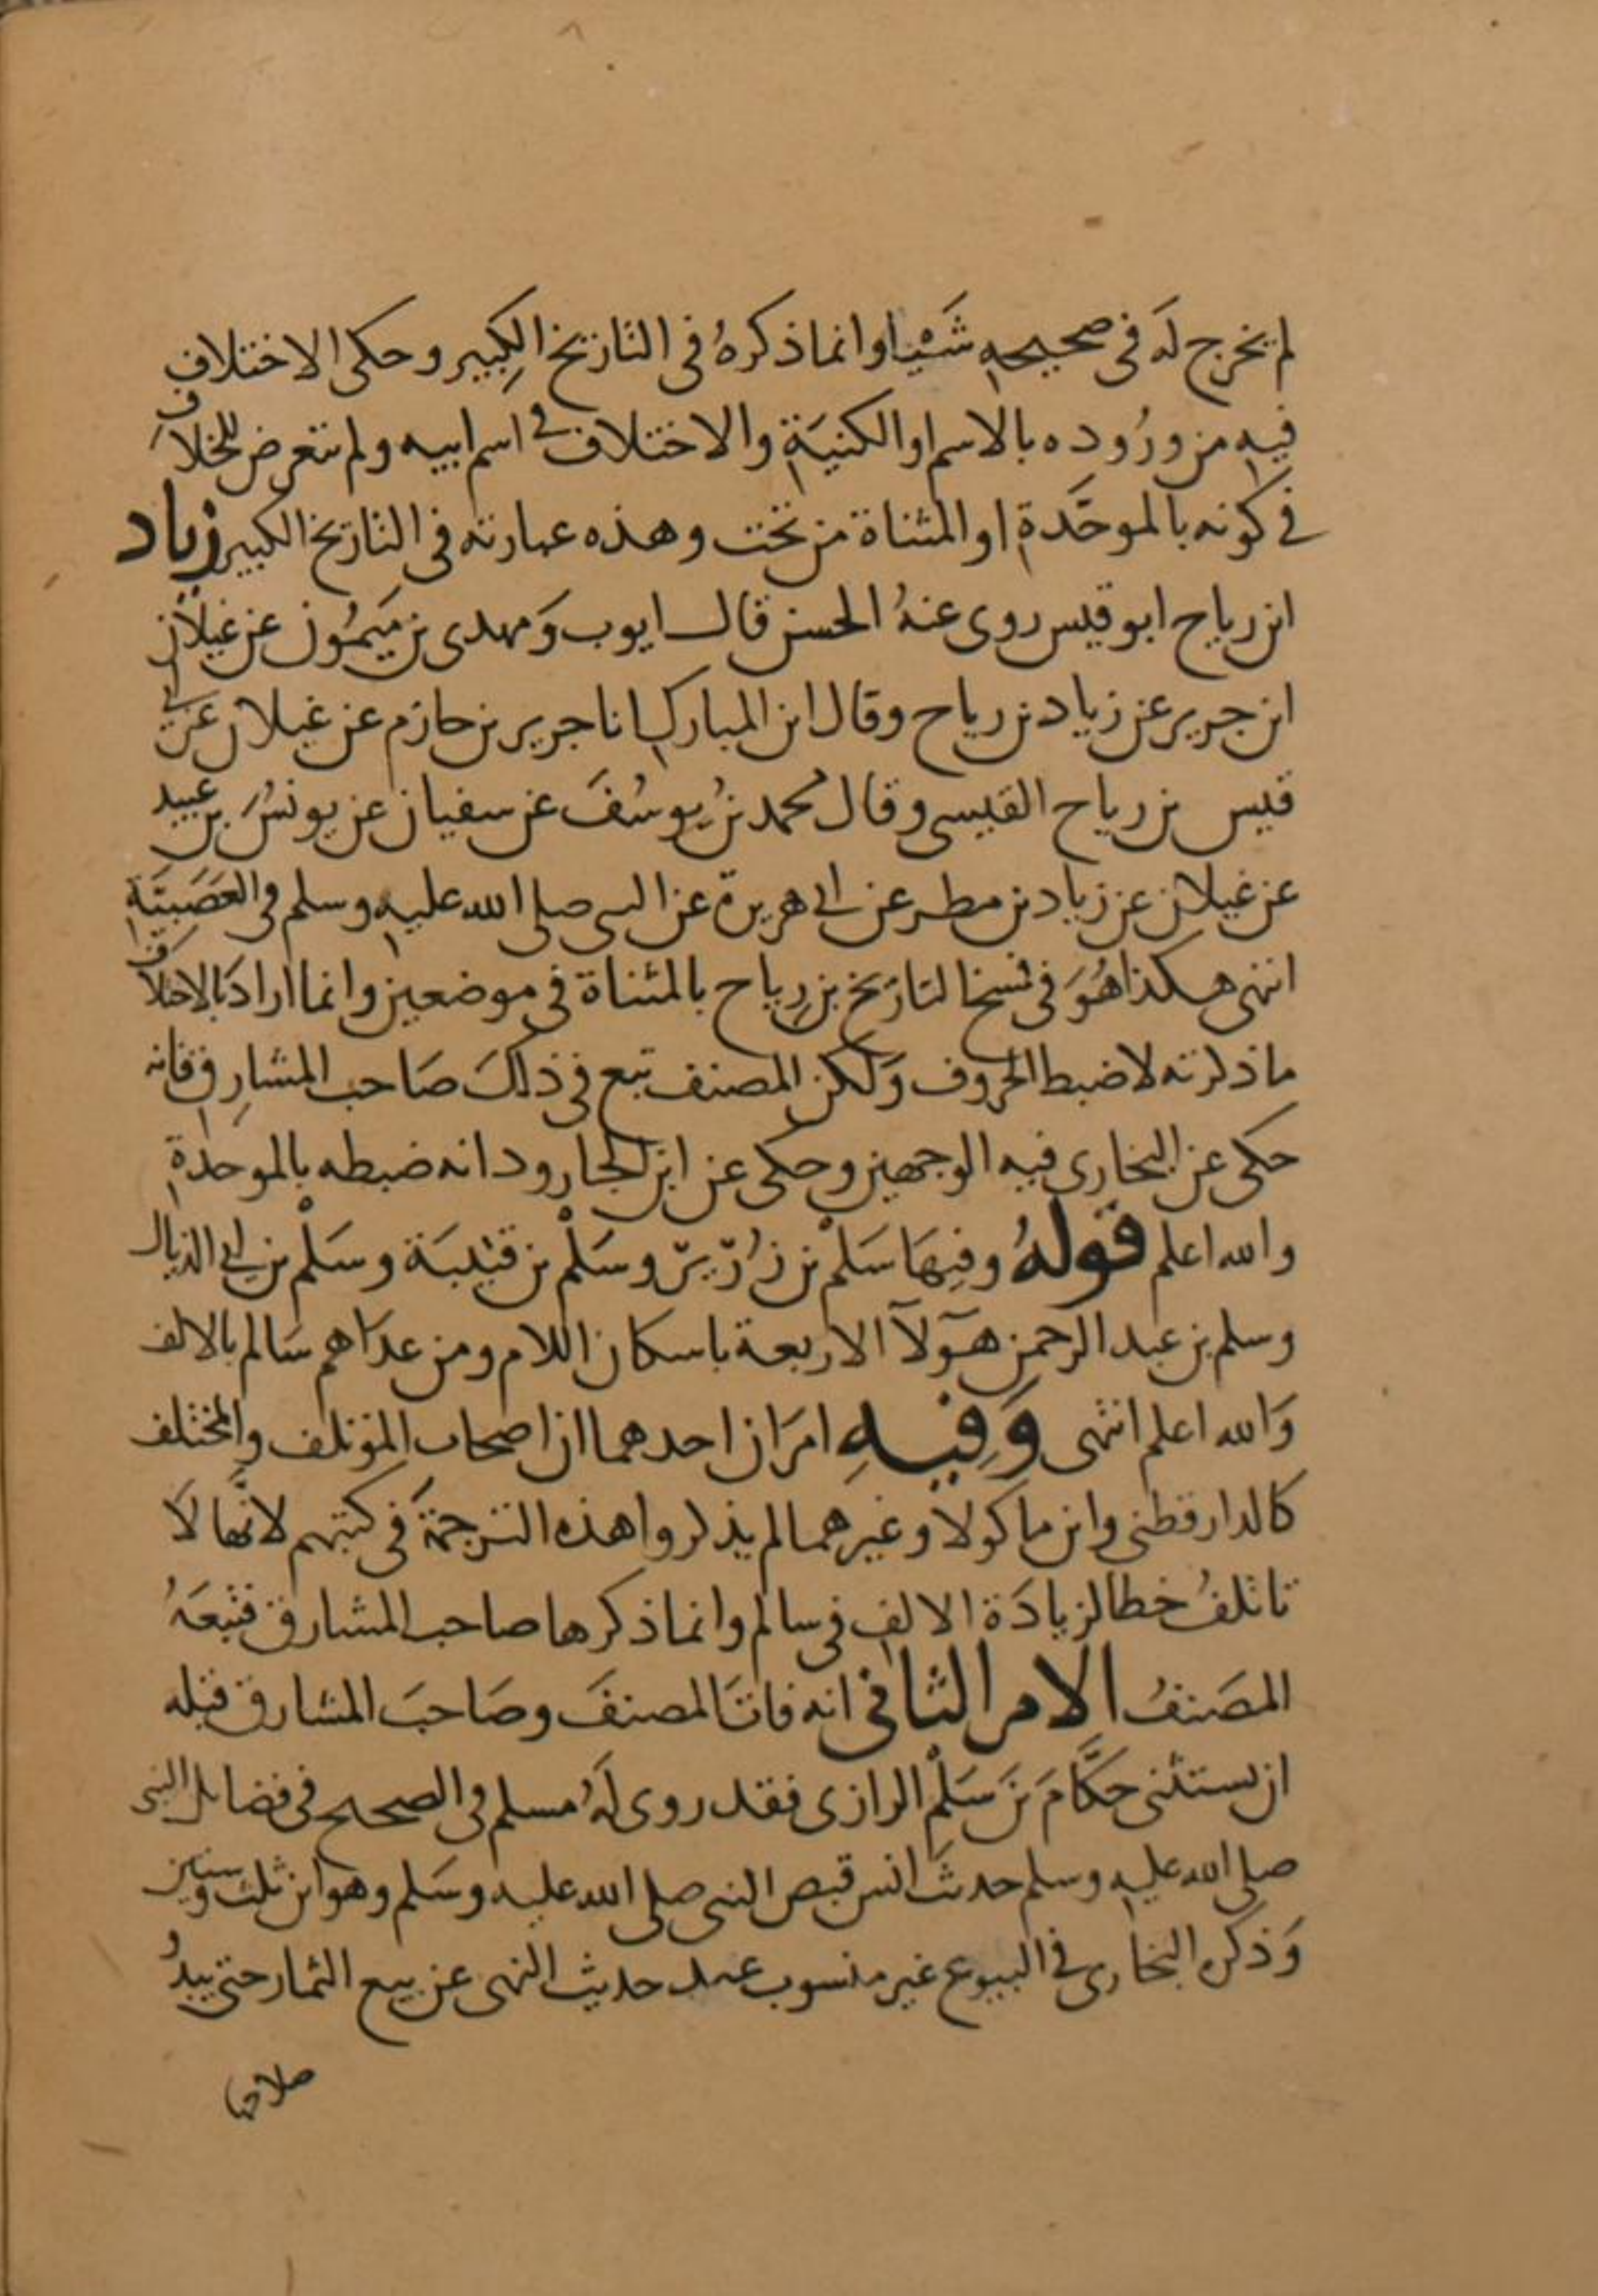 لم يخرج لَه فى صحيحه شَيْيا وانما ذكرهُ فى التاريخ الكبِير وحكى الاختلاف
فيه من ورُوده بالاسم او الكنيَة والاختلاف في اسم ابيه ولم يتعرض للخلاف
في كونه بالموحَّدة او المثناة من تحت وهذه عبارته فى التاريخ الكبير زياد
ابن رياح ابو قيس روى عنهُ الحسن قال ايوب وَمهدى بن مَيمُون عن غيلان
ابن جرير عن زياد بن رياح وقال ابن المبارك انا جرير بن حازم عن غيلان عن ابي
قيس بن رياح القيسى وقال محمد بنُ يوسُفَ عن سفيان عن يونسُ بن عبيد
عن غيلان عن زياد بن مطر عن ابي هريرة عن النبى صلى الله عليه وسلم فى العَصَبيَّة
انتهى هكذا هُوَ فى نسخ التارَيخ بن رِياح بالمثناة فى موضعين وانما ارادَ بالاختلاف
ما ذكرته لا ضبط الحروف وَلكن المصنف تبع فى ذلكَ صَاحب المشارِق فانه
حكى عن البخارى فيه الوجهين وحكى عن ابن الجارود انه ضبطه بالموحدة
والله اعلم قولهُ وفِيهَا سَلْم بن زُرَيرٍ وسَلْم بن قتيبَة وسَلْم بن ابي الذيال
وسلم بن عبد الرحمن هؤلآ الاربعة باسكان اللام ومن عدَاهم سَالم بالالف
وَالله اعلم انتهى وَفِيهِ امرَان احدهما ان اصحاب المؤتلف والمختلف
كالدارقطنى وابن ماكولا وغيرهما لم يذكروا هذه الترجمَة فى كتبهم لانَّها لَا
تاتلفُ خطا لزيادَة الالف فى سالم وانما ذكرها صاحب المشارق فتبعَهُ
المصَنفُ الامر الثانى انه فاتَ المصنفَ وصَاحبَ المشارق قبله
ان يستثنى حكَّامَ بنَ سَلْمٍ الرازى فقد روى لَهُ مسلم فى الصحيح فى فضايل النبى
صلى الله عليه وسلم حديث انس قبض النبى صلى الله عليه وسَلم وهو ابن ثلث وستين
وَذكره البخارى في البيوع غير منسوب عند حديث النهى عن بيع الثمار حتى يبدُو
صلاحها